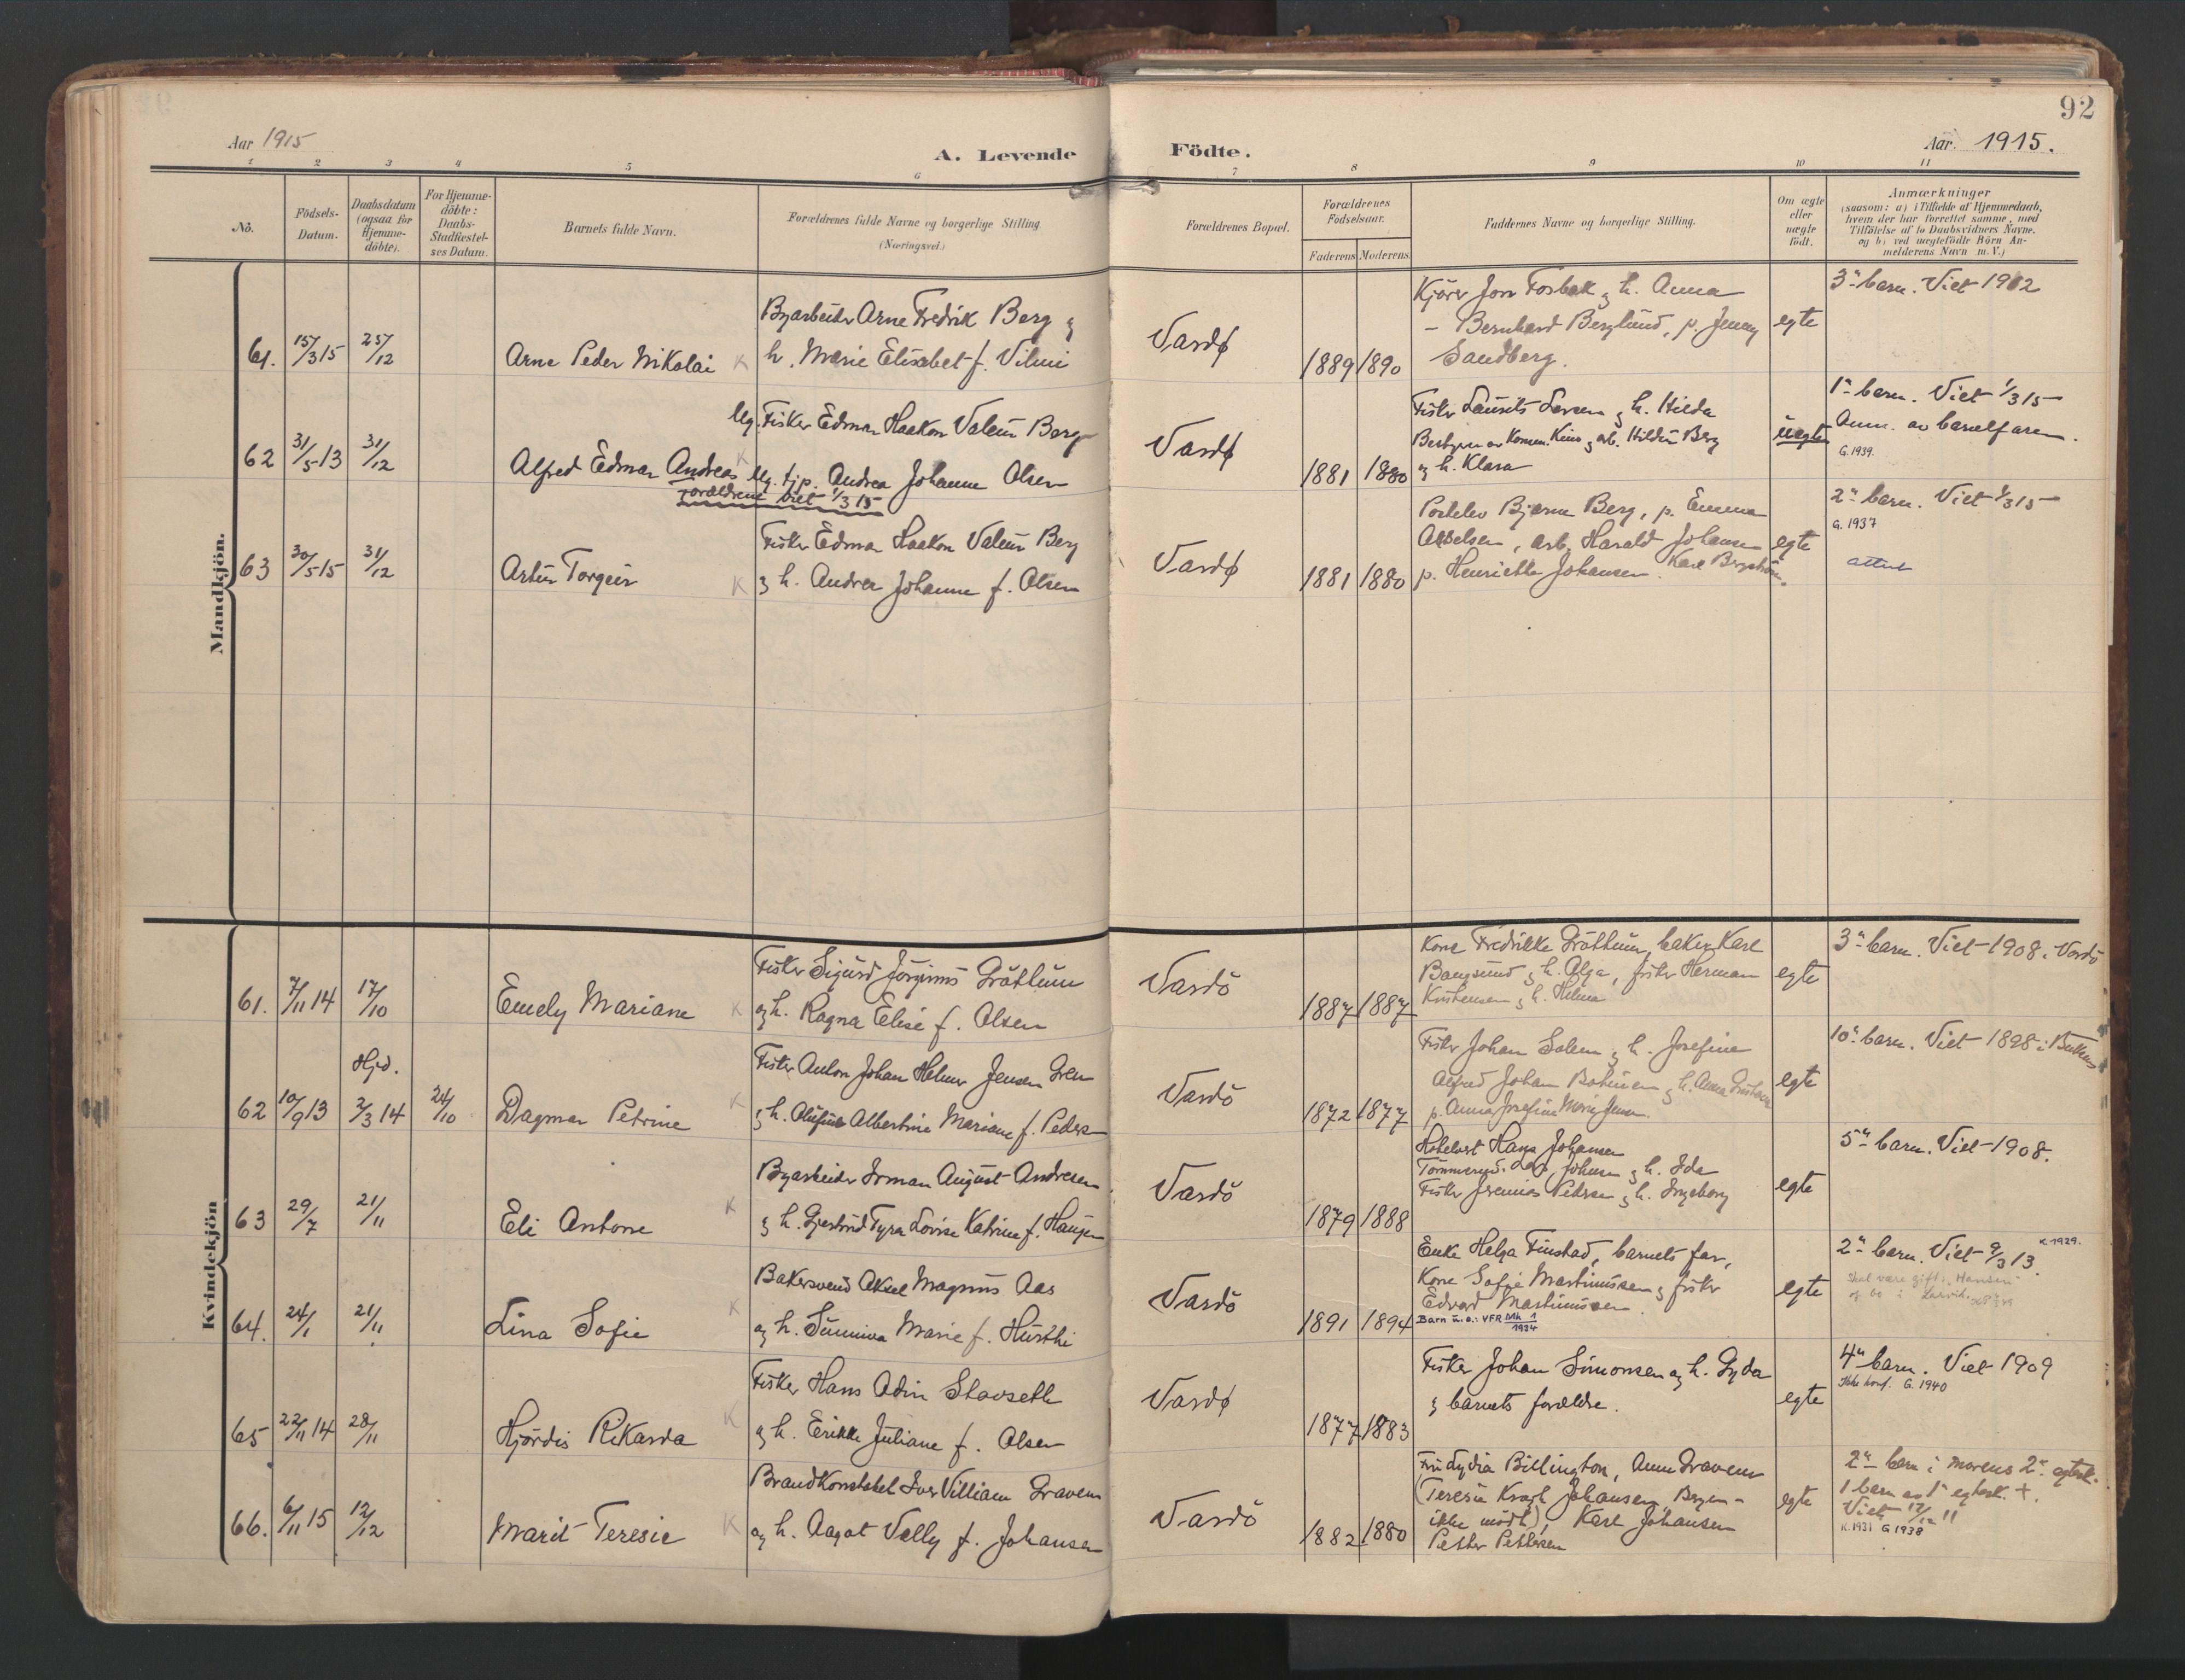 92
Aar 1915
A. Levende Födte.
Aar. 1915.
1 2 3 4 5 6 7 8 9 10 11
No.
Födsels-
Datum.
Daabsdatum
(ogsaa for
Hjemme-
döbte).
For Hjemme-
döbte:
Daabs-
Stadfæstel-
ses Datum.
Barnets fulde Navn.
Forældrenes fulde Navne og borgerlige Stilling
(Næringsvei.)
Forældrenes Bopæl.
Forældrenes
Födselsaar.
Faderens Moderens
Faddernes Navne og borgerlige Stilling.
Om ægte
eller
uægte
födt.
Anmærkninger
(saasom: a) i Tilfælde af Hjemmedaab,
hvem der har forrettet samme, med
Tilföielse af to Daabsvidners Navne.
og b) ved uægtefödte Börn An-
melderens Navn m. V.)
Mandkjön.
61. 15/3 15 25/12 Arne Peder Nikolai K
Byarbeider Arne Fredrik Berg og
h. Marie Elisabet f. Vilmi
Vardø 1889 1890
Kjører Jon Fosbak og h. Anna
– Bernhard Berglund, p. Jenny
Sandberg.
egte
3'' barn. Viet 1912
62 31/5 13 31/12 Alfred Edmar Andreas K
Forældrene viet 1/3 15
Ug. Fisker Edmar Haakon Valeur Berg
Ug. tjp. Andrea Johanne Olsen
Vardø 1881 1880
Fisker Laurits Larsen og h. Hilda
Berg
og h. Klara
uegte
1'' barn. Viet 1/3 15
Anm. av barnefaren.
G. 1939.
63 30/5 15 31/12 Artur Torgeir K
Fisker Edmar Haakon Valeur Berg
og h. Andrea Johanne f. Olsen
Vardø 1881 1880
Bjarne Berg, p. Emma
arb. Harald Johansen
p. Henriette Johansen. Karl Bergström.
egte
2'' barn. Viet 1/3 15
G. 1937
attest
Kvindekjön
61. 7/11 14 17/10 Emely Mariane K
Fisker Sigurd Jörginus Gröthum
og h. Ragna Elise f. Olsen
Vardö 1887 1887
Kone Fredrikke Gröthum, baker Karl
Bangsund og h. Olga, fisker Herman
Kristensen og h. Helma
egte
3'' barn. Viet 1908. Vardö
62 10/9 13 Hjd. 2/3 14 24/10 Dagmar Petrine K
Fisker Anton Johan Helmer Jensen
og h. Olufine Albertine Mariane f. Peders
Vardö 1872 1877
Fisker Johan Solem og h. Josefine
Alfred Johan
p. Anna Josefine Marie Jensen.
egte
10'' barn. Viet 1898 i
63 29/7 21/11 Eli Antone K
Byarbeider Irman August Andresen
og h. Gjertrud Tyra Lovise Katrine f. Haugen
Vardö 1879 1888
Hotelvert Hans Johansen
Tömmermd. Johnsen og h. Ida
Fisker Jremias Pedersen og h. Ingeborg
egte
5'' barn. Viet 1908.
64. 24/1 21/11 Lina Sofie K
Bakersvend Aksel Magnus Aas
og h. Sunniva Marie f. Hursthi
Vardö 1891 1894
Enke Helga Finstad, barnets far,
Kone Sofie Martinussen og fisker
Edvard Martinussen.
Barn u.e.: VFR Mk 1
1934
egte
2'' barn. Viet 9/3 13.
K. 1929.
Skal være gift: Hansen
og bo i Larvik.
65 22/11 14 28/11 Hjördis Rikarda K
Fisker Hans Odin Stavseth
og h. Erikke Juliane f. Olsen
Vardø 1877 1883
Fisker Johan Simonsen og h. Gyda
og barnets forældre.
egte
4'' barn. Viet 1909
Ikke konf. G. 1940
66. 6/11 15 12/12 Marit Teresie K
Brandkonstabel Iver Villiam Gravem
og h. Aagot Vally f. Johansen
Vardö 1882 1880
Fru Lydia Billington, Anna Gravem
(Teresia Kragh Johansen, Bergen –
ikke mödt), Karl Johansen
Petter Pettersen
egte
2'' barn i morens 2'' egtesk.
1 barn av 1'' egtesk. +.
Viet 17/12 11
K. 1931 G 1938